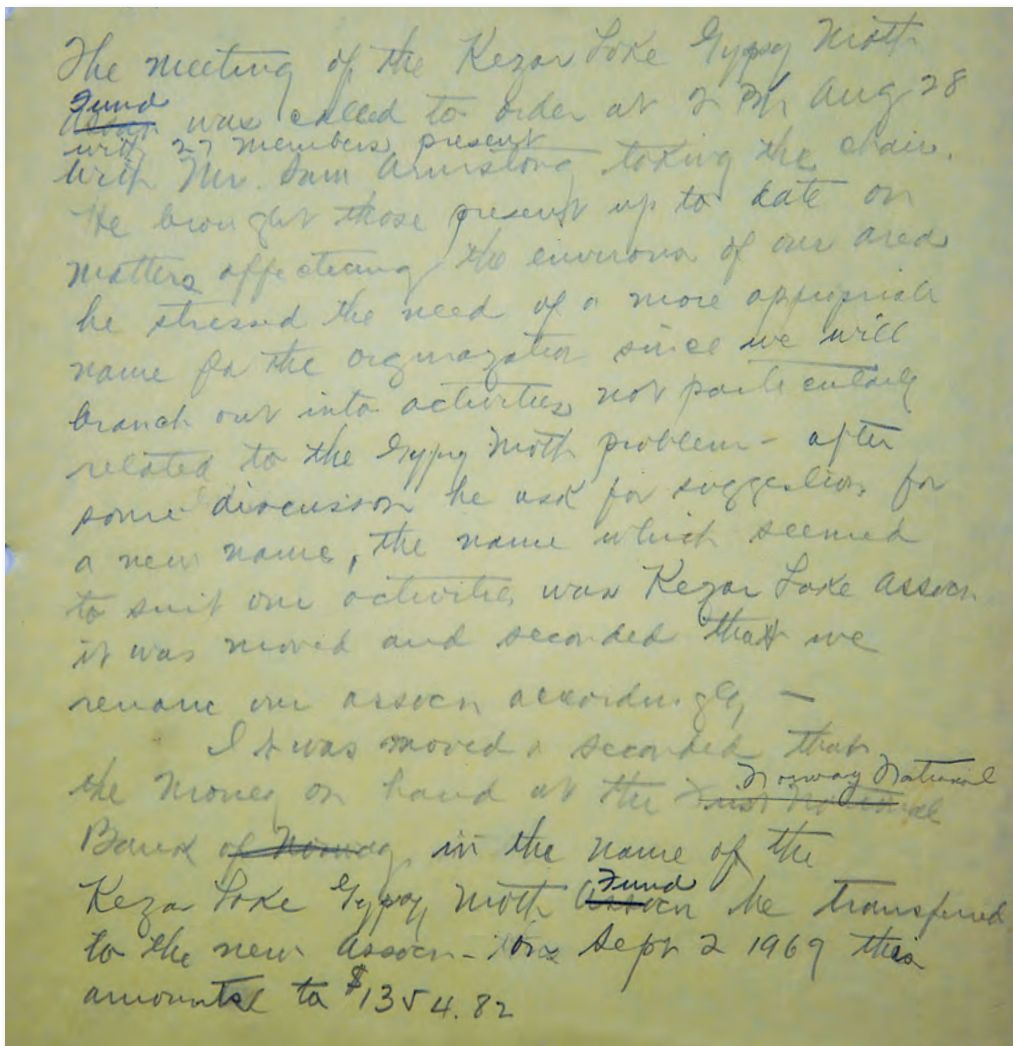 The meeting of the Kezar Lake Gypsy Moth
Fund
Assocn was called to order at 2 PM Aug 28
with 27 members present
With Mr. Sam Armstong taking the chair.
He brought those present up to date on
matters affecting the environs of our area
he stressed the need of a more appropriate
name for the orginazation since we will
branch out into activities not particularly
related to the Gypsy Moth problem - after
some discussion he ask for suggestions for
a new name, the name which seemed
to suit our activities was Kezar Lake Assocn
it was moved and seconded that we
rename our assocn accordingly —
It was moved & seconded that
Norway National
the money on hand at the First National
Bank of Norway in the name of the
Fund
Kezar Lake Gypsy Moth Assocn be transferred
to the new Assocn - on Sept 2 1969 this
amounts to $1354.82